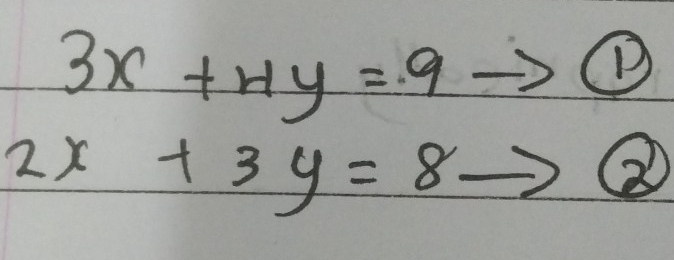 3x + 4y = 9 → ①
2x + 3y = 8 → ②